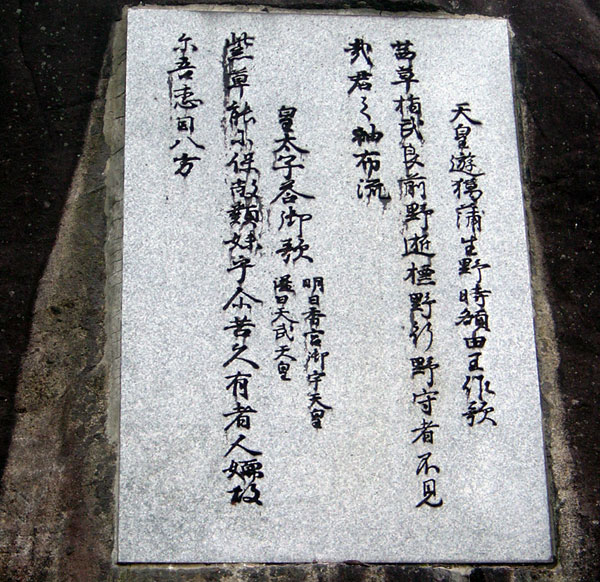 天皇遊獦蒲生野時額田王作歌
茜草指武良前野逝標野行野守者不見
哉君之袖布流
皇太子答御歌
明日香宮御宇天皇
謚曰天武天皇
紫草能尓保敝類妹乎尓苦久有者人嬬故
尓吾恋目八方